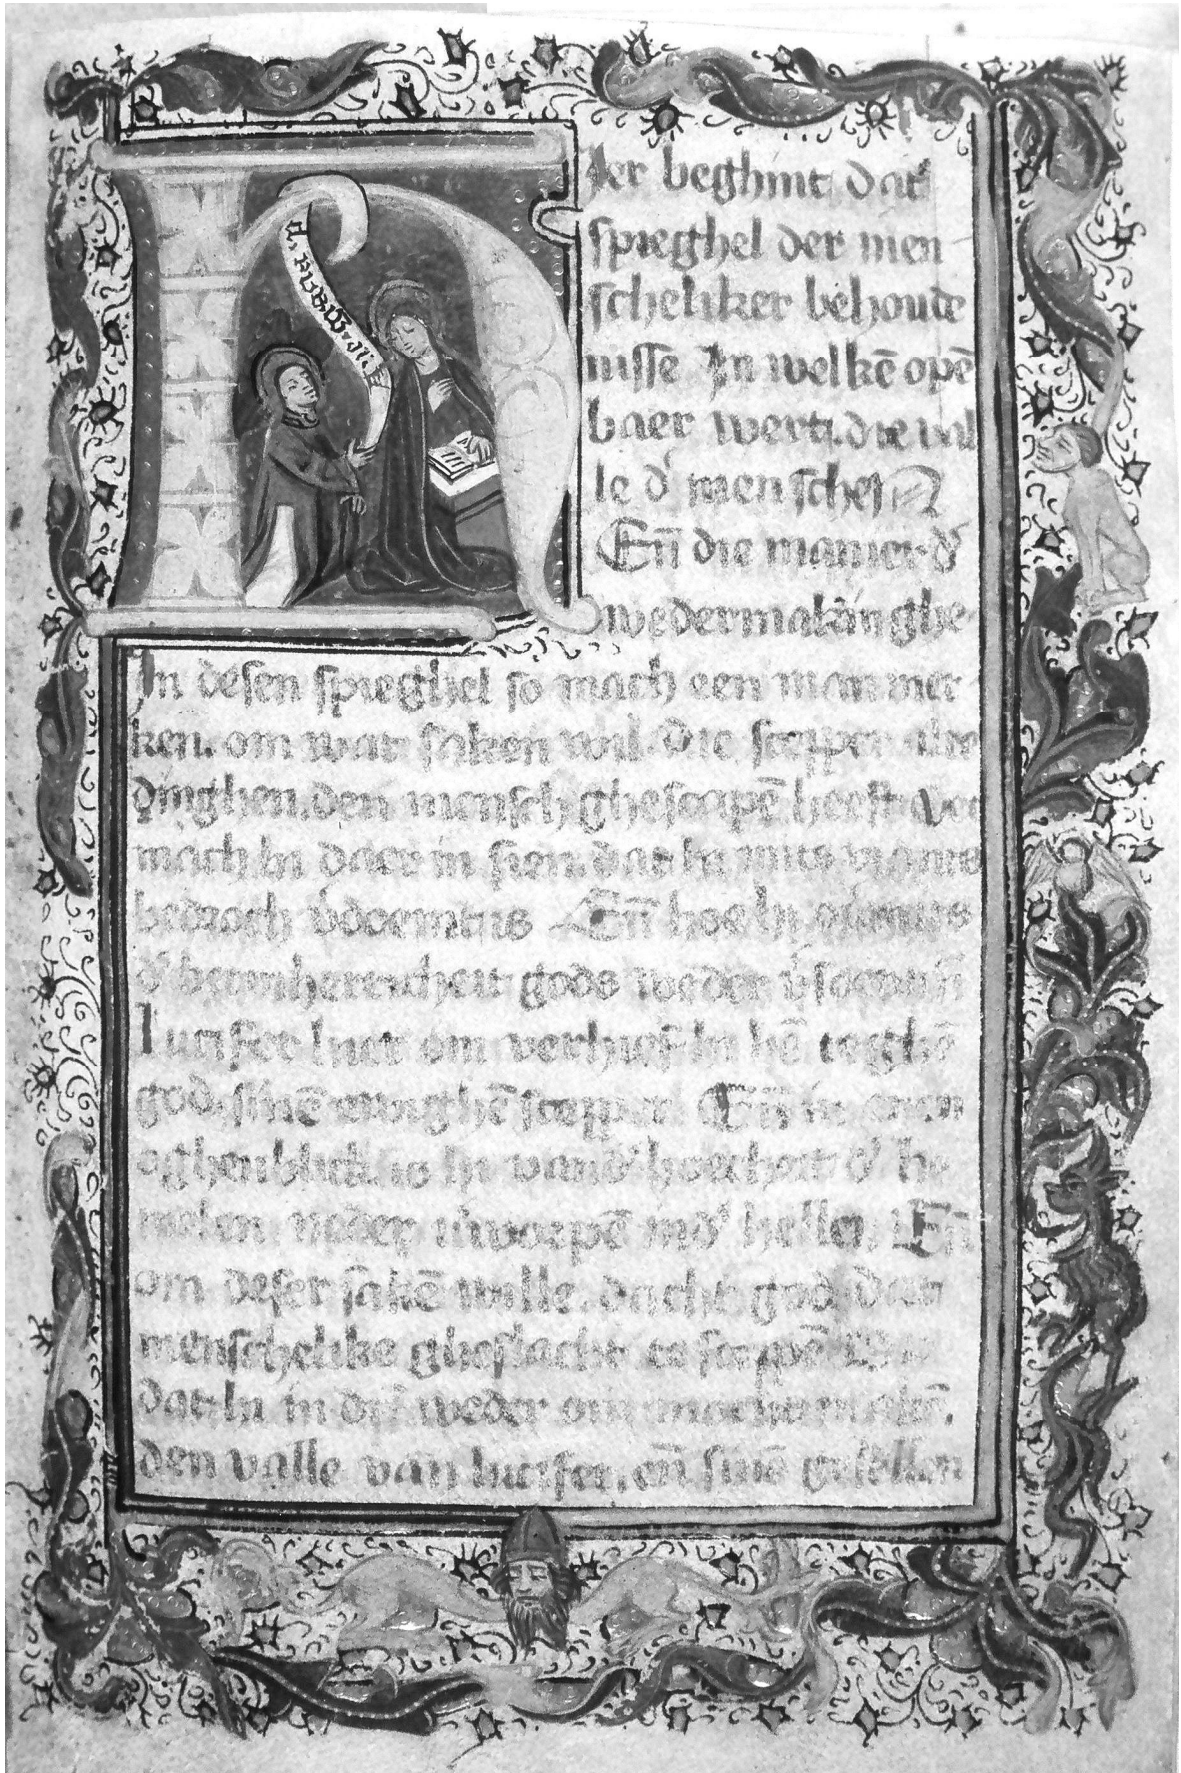 Hier beghint dat
spieghel der men
scheliker behoude
nisse In welkē opē
baer wert. die val
le d' menschen
Eñ die manier d'
wedermakinghe
In desen spieghel so mach een man mer
ken. om wat saken wil. die scepper alre
dinghen. den mensch ghescapē heeft Oec
mach hi daer in sien. dat hi mits viants
bedroch v'doemt is Eñ hoe hi
d' bermherticheit gods weder v'soent
Lucifer hier om verhief hi hē teghē
god. sinē ewighē scepper. Eñ in enen
oghenblick is hi vand' hoecheit d' he
melen neder gheworpē ind' helle. Eñ
om deser sakē wille. dacht god. dat
menschelike gheslacht te sceppē
dat hi weder om mochte
den valle van lucifer. eñ sinē gesellen